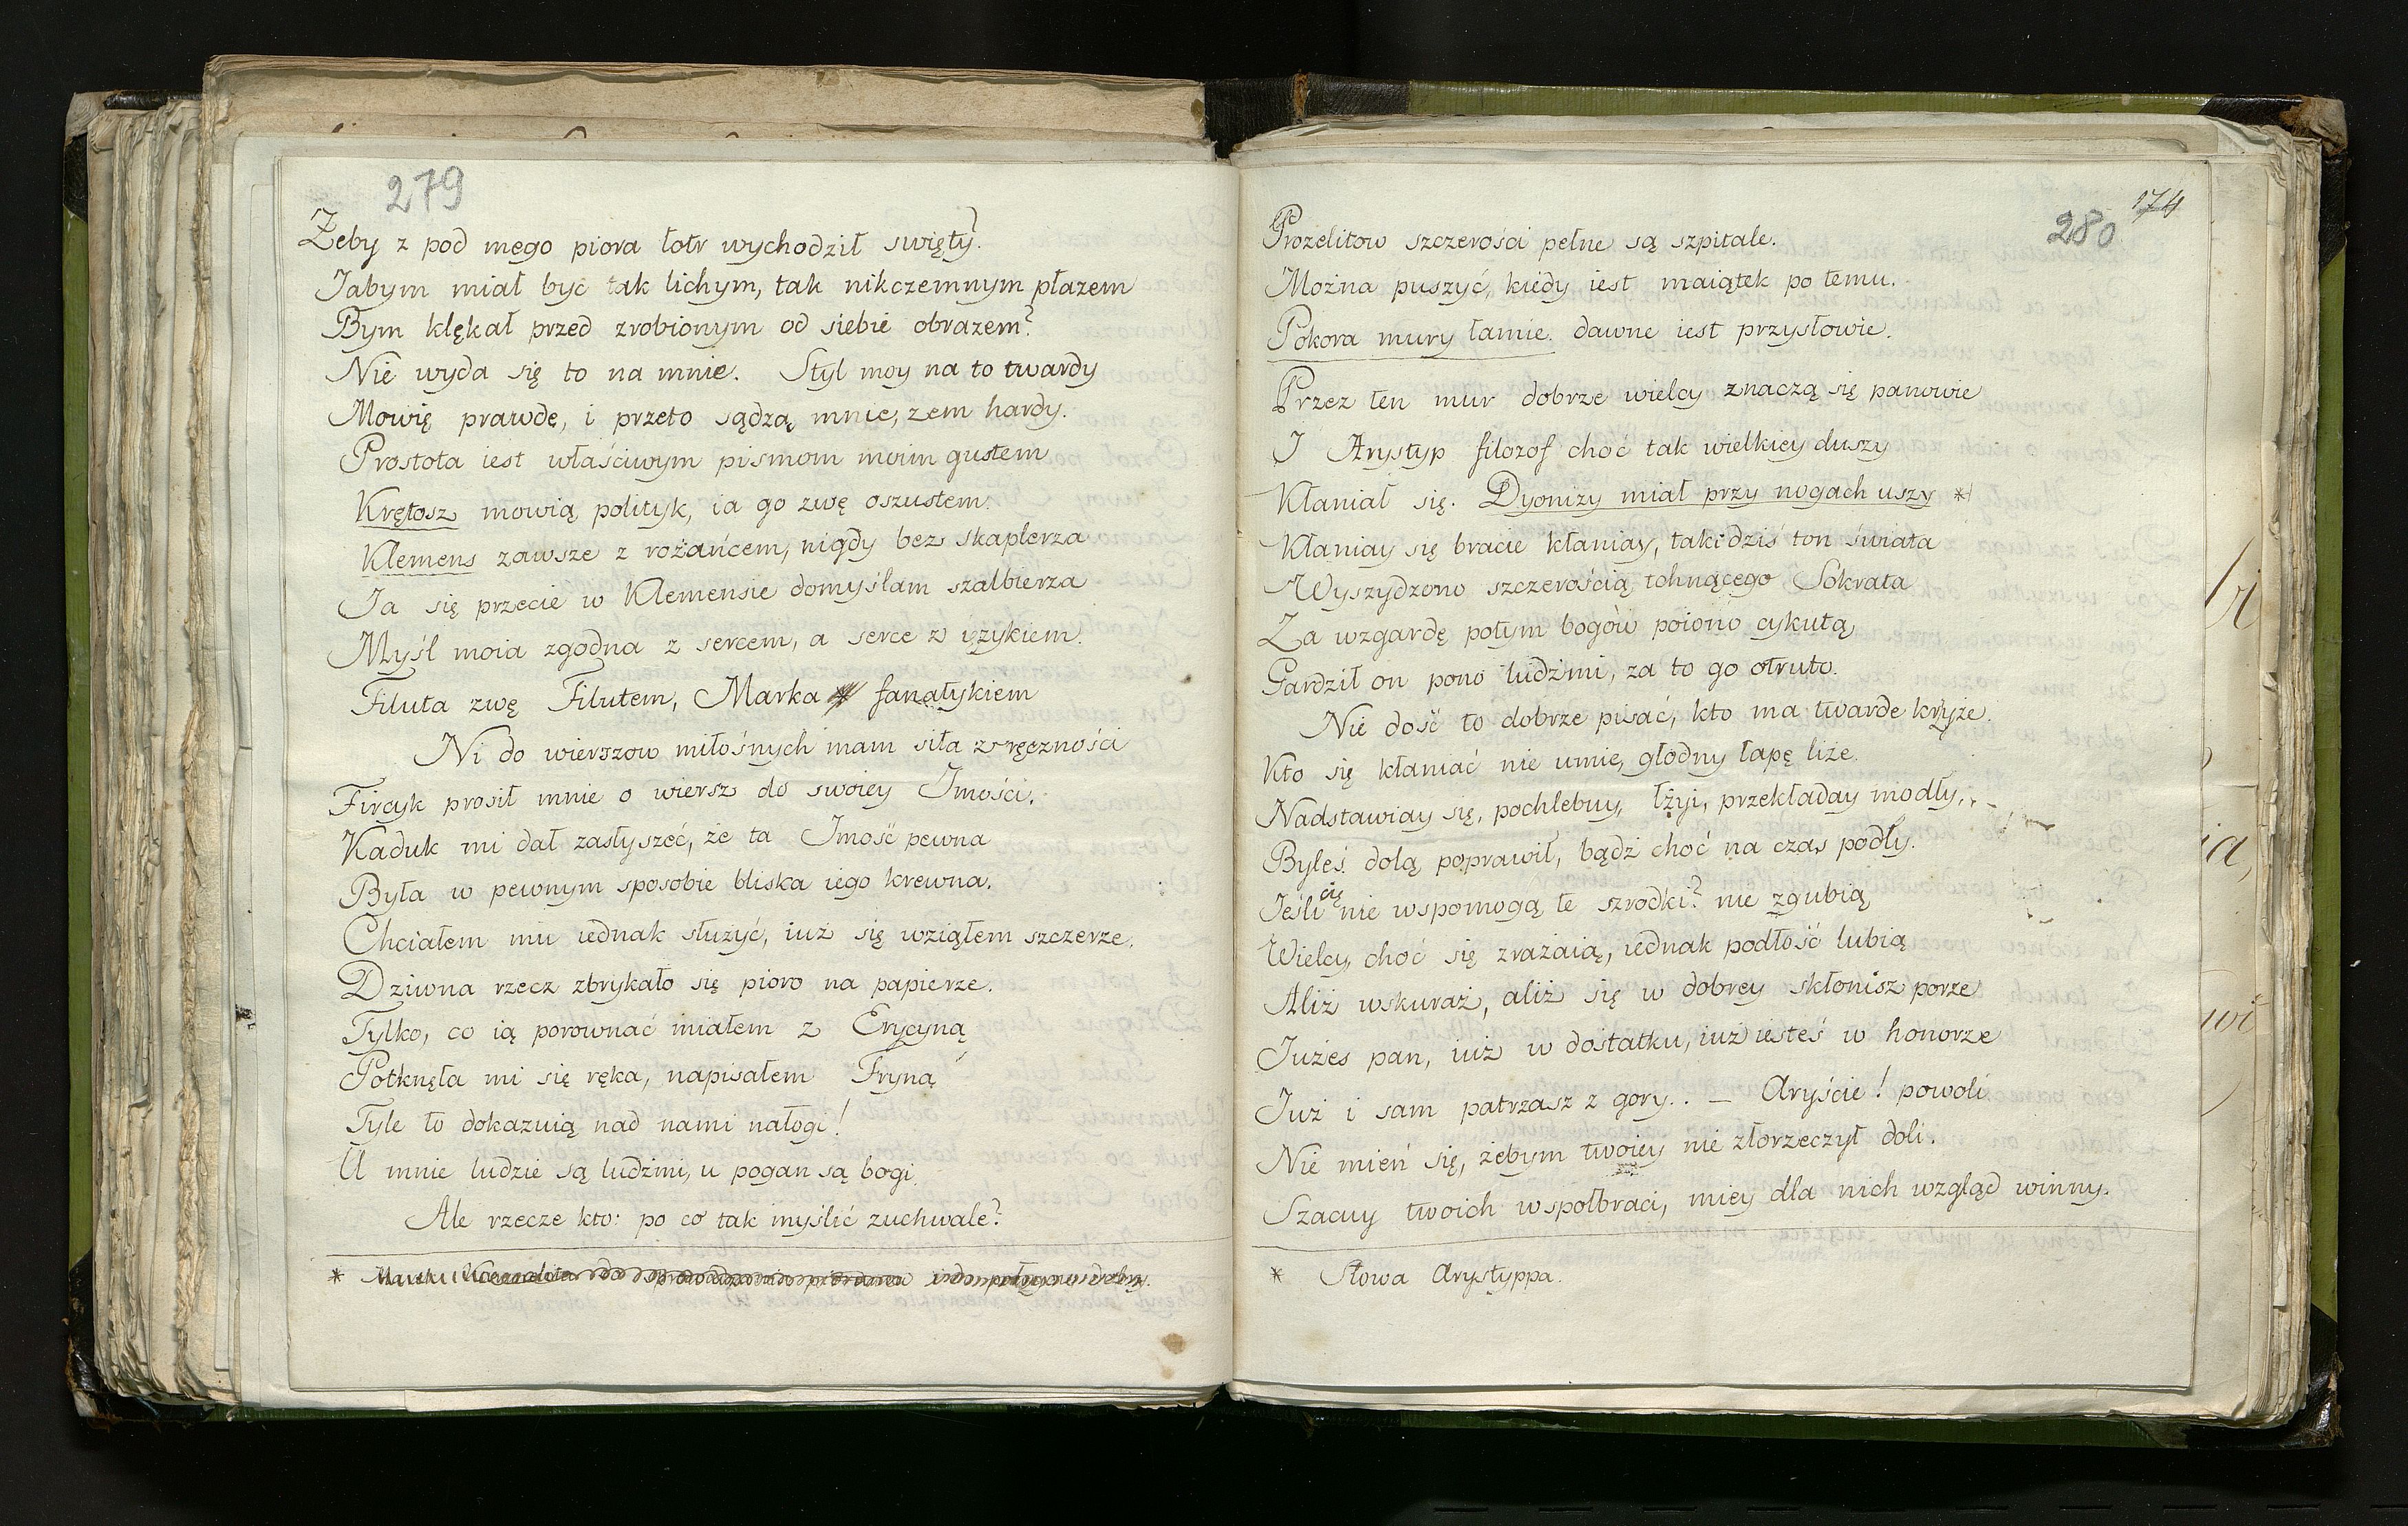 279
Żeby z pod mego piora łotr wychodził swięty?
Iabym miał być tak lichym, tak nikczemnym płazem
Bym klękał przed zrobionym od siebie obrazem?
Nie wyda się to na mnie. Styl moy na to twardy
Mowię prawdę, i przeto sądzą mnie, żem hardy.
Prostota iest właściwym pismom moim gustem
Krętosz mowią polityk, ia go zwę oszustem.
Klemens zawsze z rożańcem, nigdy bez skaplerza
Ia się przecie w Klemensie domyślam szalbierza
Myśl moia zgodna z sercem, a serce z ięzykiem.
Filuta zwę Filutem, Marka fanatykiem
Ni do wierszow miłośnych mam siła zręczności
Fircyk prosił mnie o wiersz do swoiey Imości.
Kaduk mi dał zasłyszeć, że ta Imość pewna
Była w pewnym sposobie bliska iego krewna.
Chciałem mu iednak służyć, iuż się wziąłem szczerze.
Dziwna rzecz zbrykało się pioro na papierze.
Tylko, co ią porownać miałem z Erycyną
Potknęła mi się ręka, napisałem Fryną
Tyle to dokazuią nad nami nałogi!
U mnie ludzie są ludźmi, u pogan są bogi.
Ale rzecze kto: po co tak myślić zuchwale?
*
174
280
Prozelitow szczerości pełne są szpitale.
Można puszyć, kiedy iest maiątek po temu.
Pokora mury łamie. dawne iest przysłowie.
Przez ten mur dobrze wielcy znaczą się panowie
I Arystyp filozof choć tak wielkiey duszy
Kłaniał się. Dyonizy miał przy nogach uszy *
Kłaniay się bracie kłaniay, taki dziś ton świata
Wyszydzono szczerością tchnącego Sokrata
Za wzgardę potym bogów poiono cykutą
Gardził on pono ludźmi, za to go otruto.
Nie dość to dobrze pisać, kto ma twarde krzyże.
Kto się kłaniać nie umie, głodny łapę liże.
Nadstawiay się, pochlebuy, łżyi, przekładay modły,.
Byleś dolą poprawił, bądź choć na czas podły.
Ieśli cię nie wspomogą te szrodki? nie zgubią
Wielcy, choć się zrażaią, iednak podłość lubią
Aliż wskuraż, aliż się w dobrey skłonisz porze
Iużes pan, iuż w dostatku, iuż iesteś w honorze
Iuż i sam patrzasz z gory.. – Aryście! powoli
Nie mień się, żebym twoiey nie złorzeczył doli.
Szacuy twoich wspołbraci, miey dla nich wzgląd winny.
* Słowa Arystyppa.